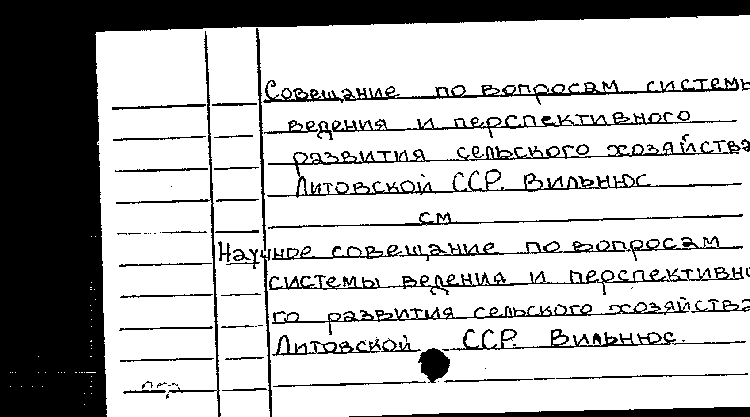 Совещание по вопросам системы
ведения и перспективного
развития сельского хозяйства
Литовской ССР. Вильнюс
см
Научное совещание по вопросам
системы ведения и перспективно
го развития сельского хозяйства
Литовской ССР. Вильнюс.